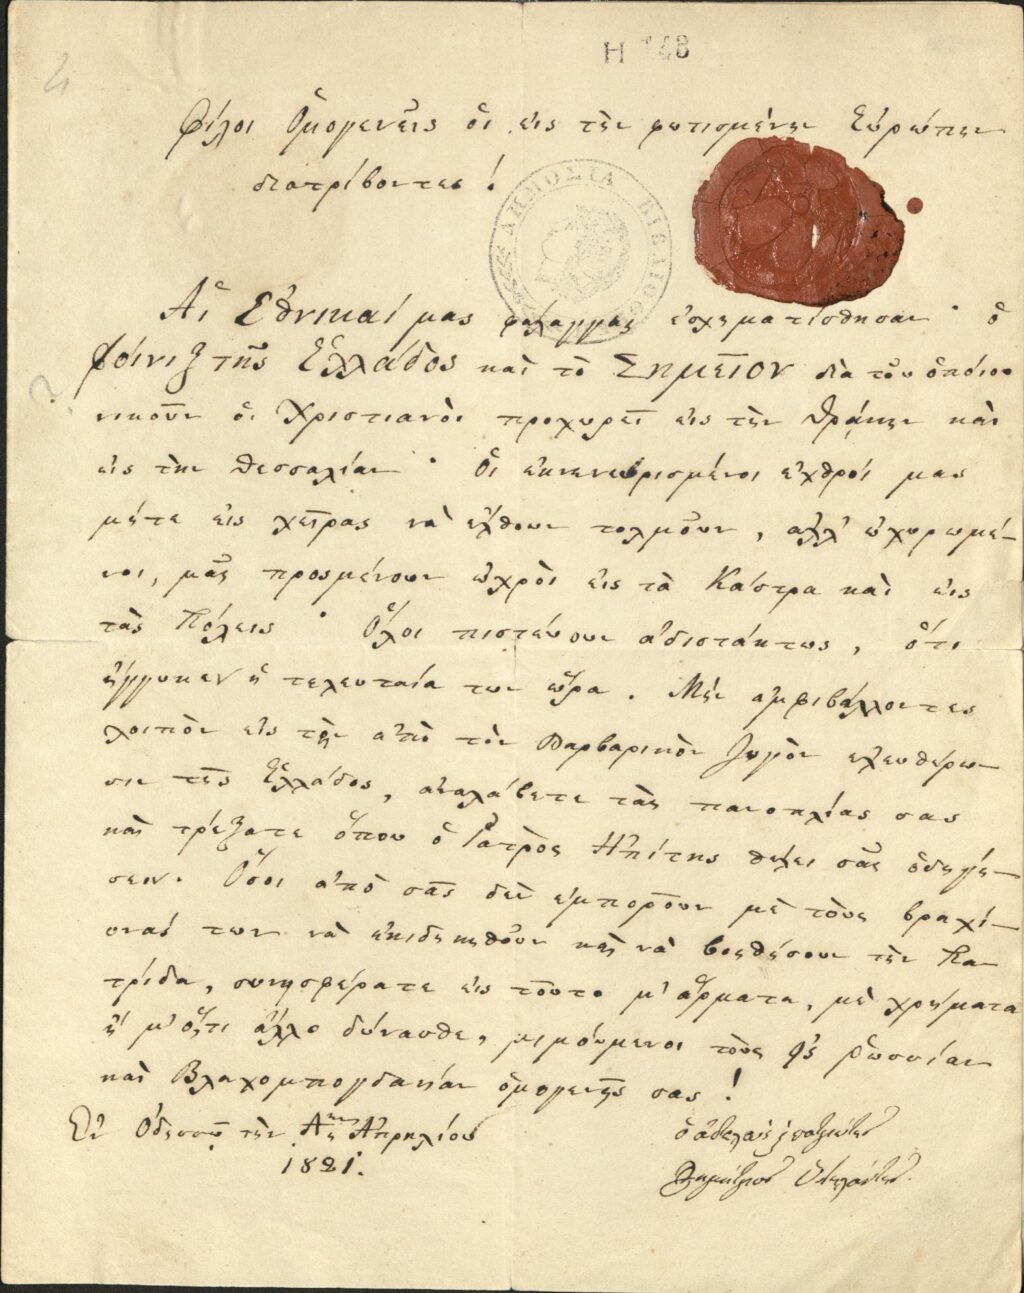 Η 748
Φίλοι Ὁμογενεῖς ὁι εἰς τὴν φωτισμένην Εὐρώπην
διατρίβοντες!
ΔΗΜΟΣΙΑ ΒΙΒΛΙΟΘ
Αἱ Εθνικαί μας φάλαγγες ἐσχηματίσθησαν · ὁ
φοίνιξ τῆς Ἑλλάδος καὶ τὸ Σημεῖον διὰ τοῦ ὁποίου
νικοῦν ὁι Χριστιανὸι προχωρεῖ εἰς τὴν Θράκην καὶ
εἰς τὴν Θεσσαλίαν · Ὁι ἐκνενευρισμένοι ἐχθροί μας
μήτε εἰς χεῖρας νὰ ἔλθουν τολμοῦν, ἀλλ' ὀχυρωμέ-
νοι, μᾶς προσμένουν ὠχρὸι εἰς τὰ Κάστρα καὶ εἰς
τὰς Πόλεις · Ὅλοι πιστέυουν ἀδιστάκτως, ὅτι
ἤγγικεν ἡ τελευταία των ὥρα. Μὴν ἀμφιβάλλοντες
λοιπὸν εἰς τὴν ἀπὸ τὸν Βαρβαρικὸν Ζυγὸν ἐλευθέρω
σιν τῆς Ἑλλάδος, ἀναλάβετε τὰς πανοπλίας σας
καὶ τρέξατε ὅπου ὁ Ἰατρὸς Ηπίτης θέλει σᾶς ὁδηγή-
σειν. Ὅσοι ἀπὸ σᾶς δὲν ἐμποροῦν μὲ τοὺς βραχί-
ονάς των νὰ ἐπιδειχθοῦν καὶ νὰ βοηθήσουν τὴν Πα
τρίδα, συνησφέρατε εἰς τοῦτο μ' ἄρματα, μὲ χρήματα
ἤ μ' ὅ,τι ἄλλο δύνασθε, μιμούμενοι τοὺς εἰς Ῥωσσίαν
καὶ Βλαχομπογδανίαν ὁμογενῆς σας!
Ἐν Οδεσσῷ τὴν Απριλίου
1821.
ὁ ἀδελφὸς
Δημήτριος